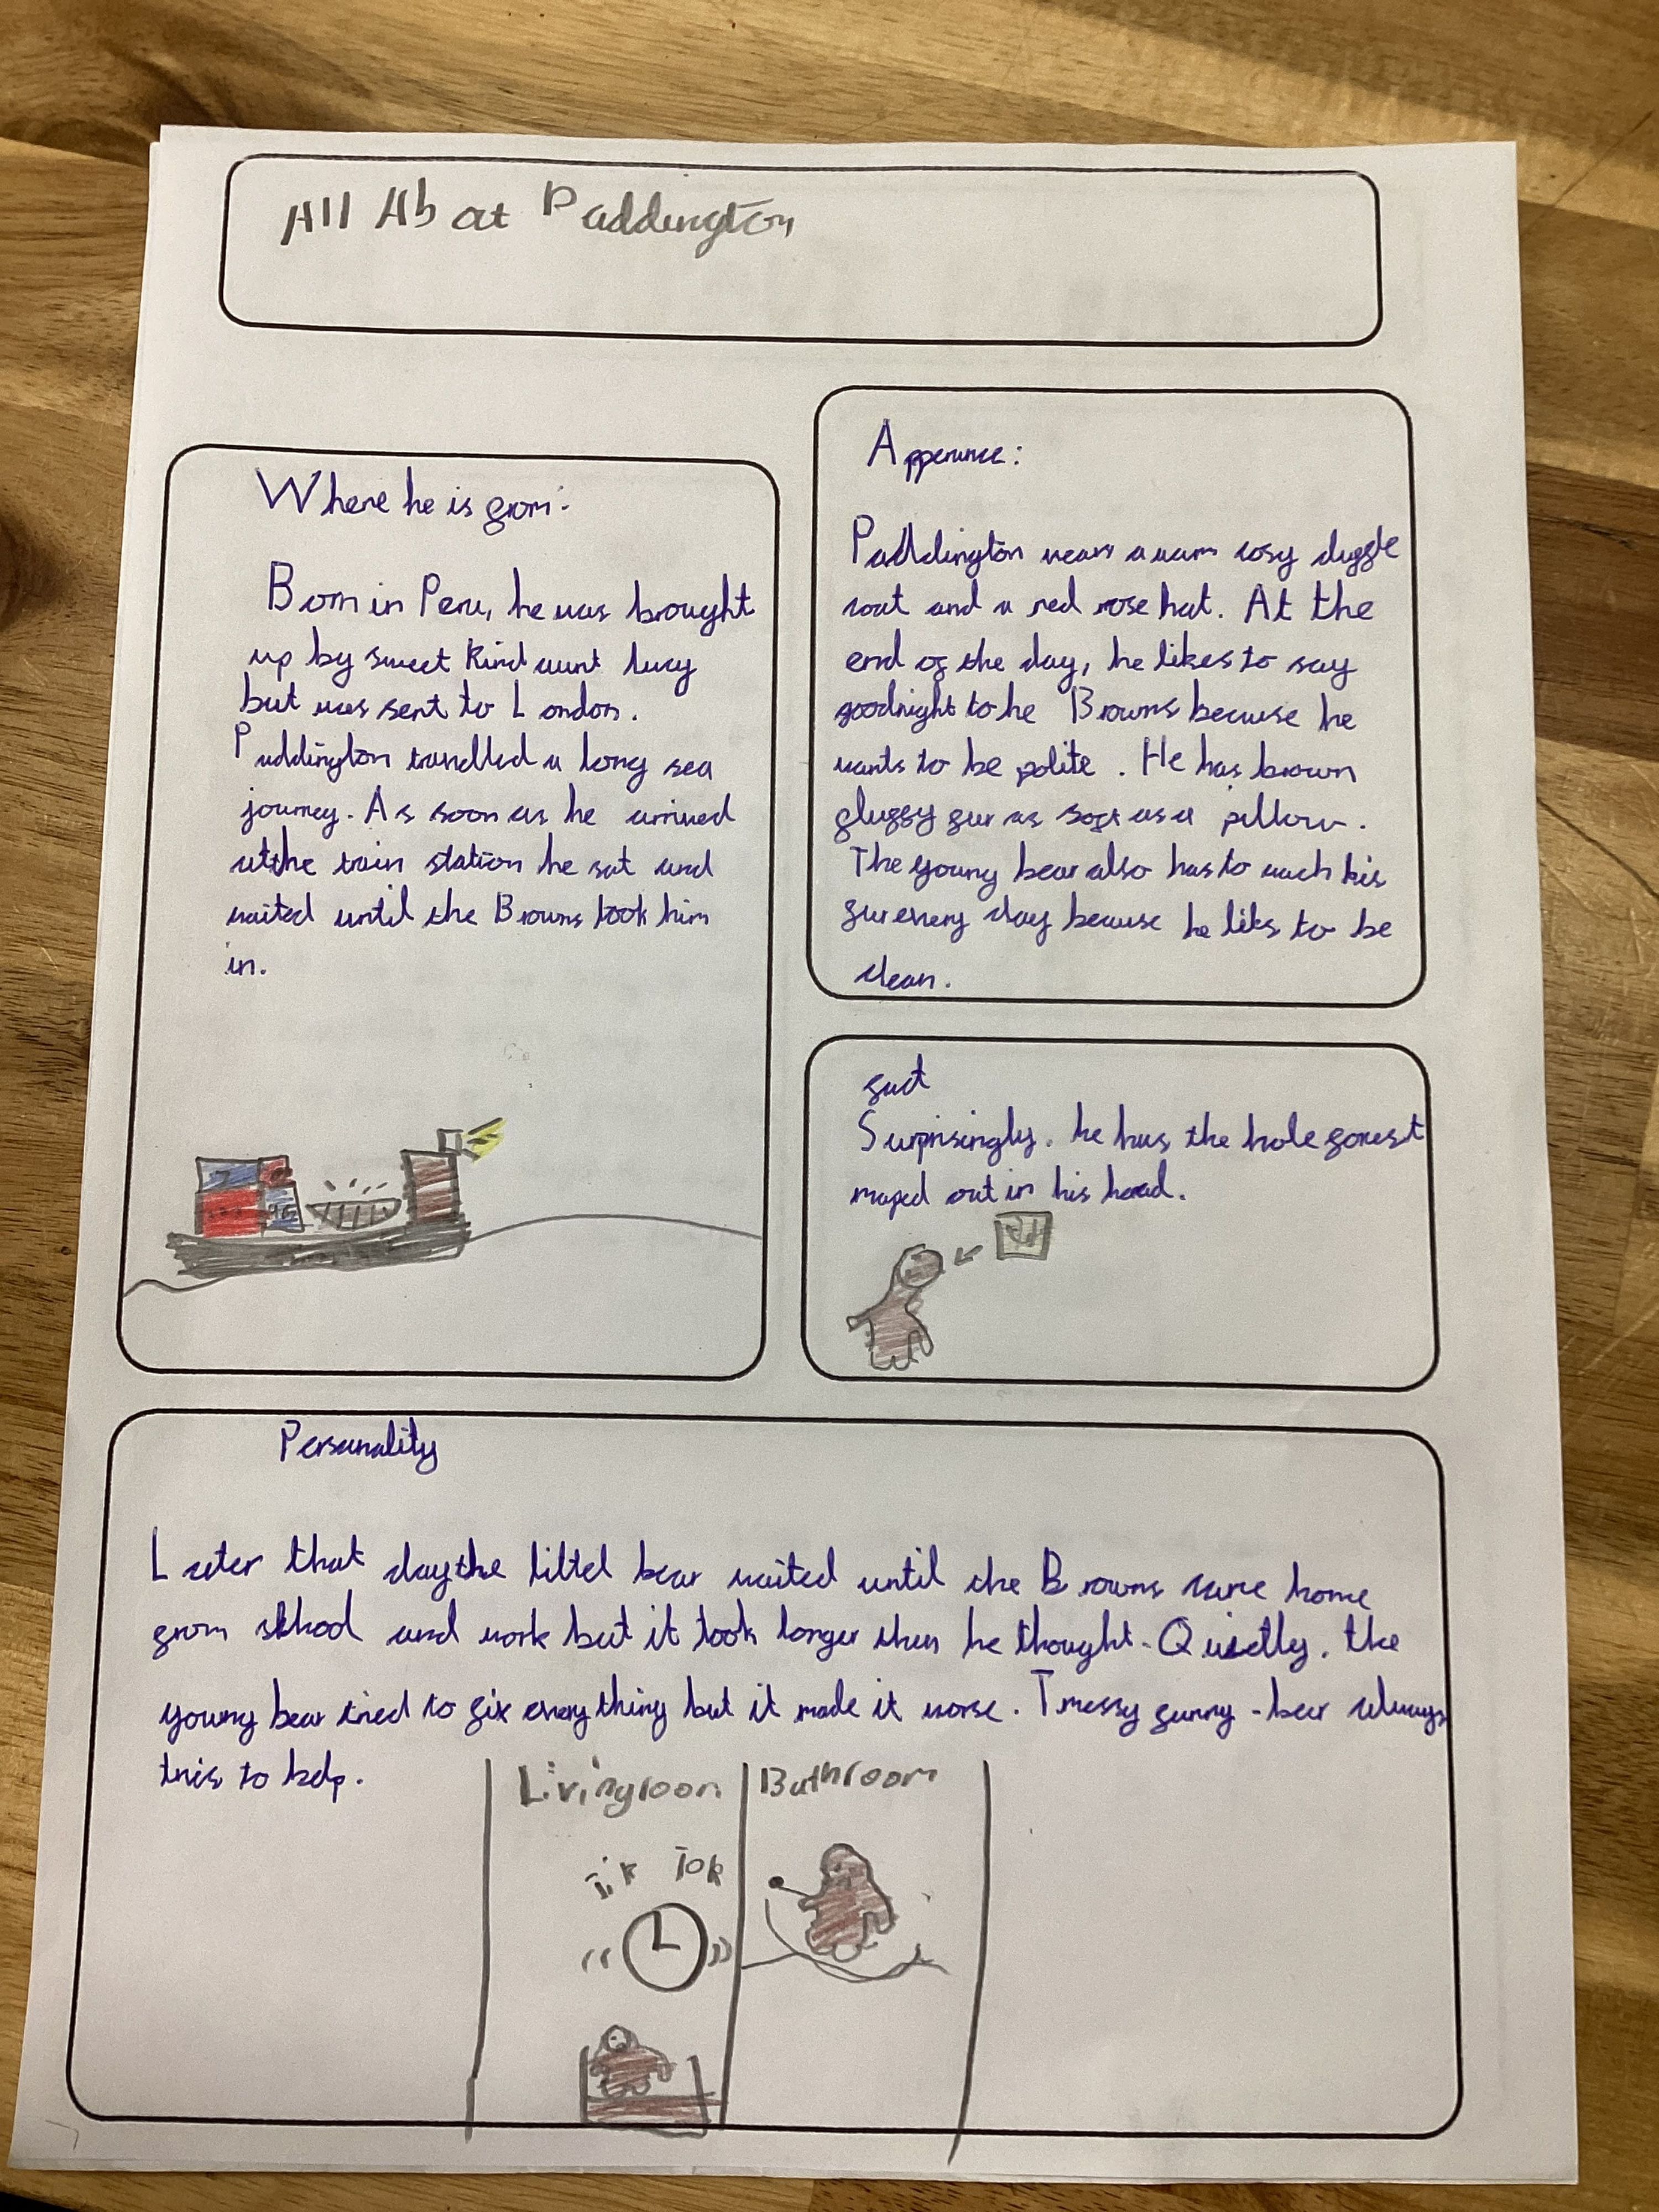 All Ab at Paddington
Where he is from:
Born in Peru, he was brought
up by sweet kind aunt lucy
but was sent to London.
Paddington travelled a long sea
journey. As soon as he arrived
at the train station he sat and
waited until the Browns took him
in.
Apperance:
Paddington wears a warm cosy duggle
coat and a red rose hat. At the
end of the day, he likes to say
goodnight to he Browns because he
wants to be polite. He has brown
fluffy fur as soft as a pillow.
The young bear also has to wach his
fur every day because he liks to be
clean.
fact
Surprisingly, he has the hole forest
maped out in his head.
Personality
Later that day the littel bear waited until the Browns came home
from skhool and work but it took longer then he thought. Quietly, the
young bear tried to fix everything but it made it worse. T messy funny-bear always
tries to help.
Livingroon
Bathroom
Tik Tok